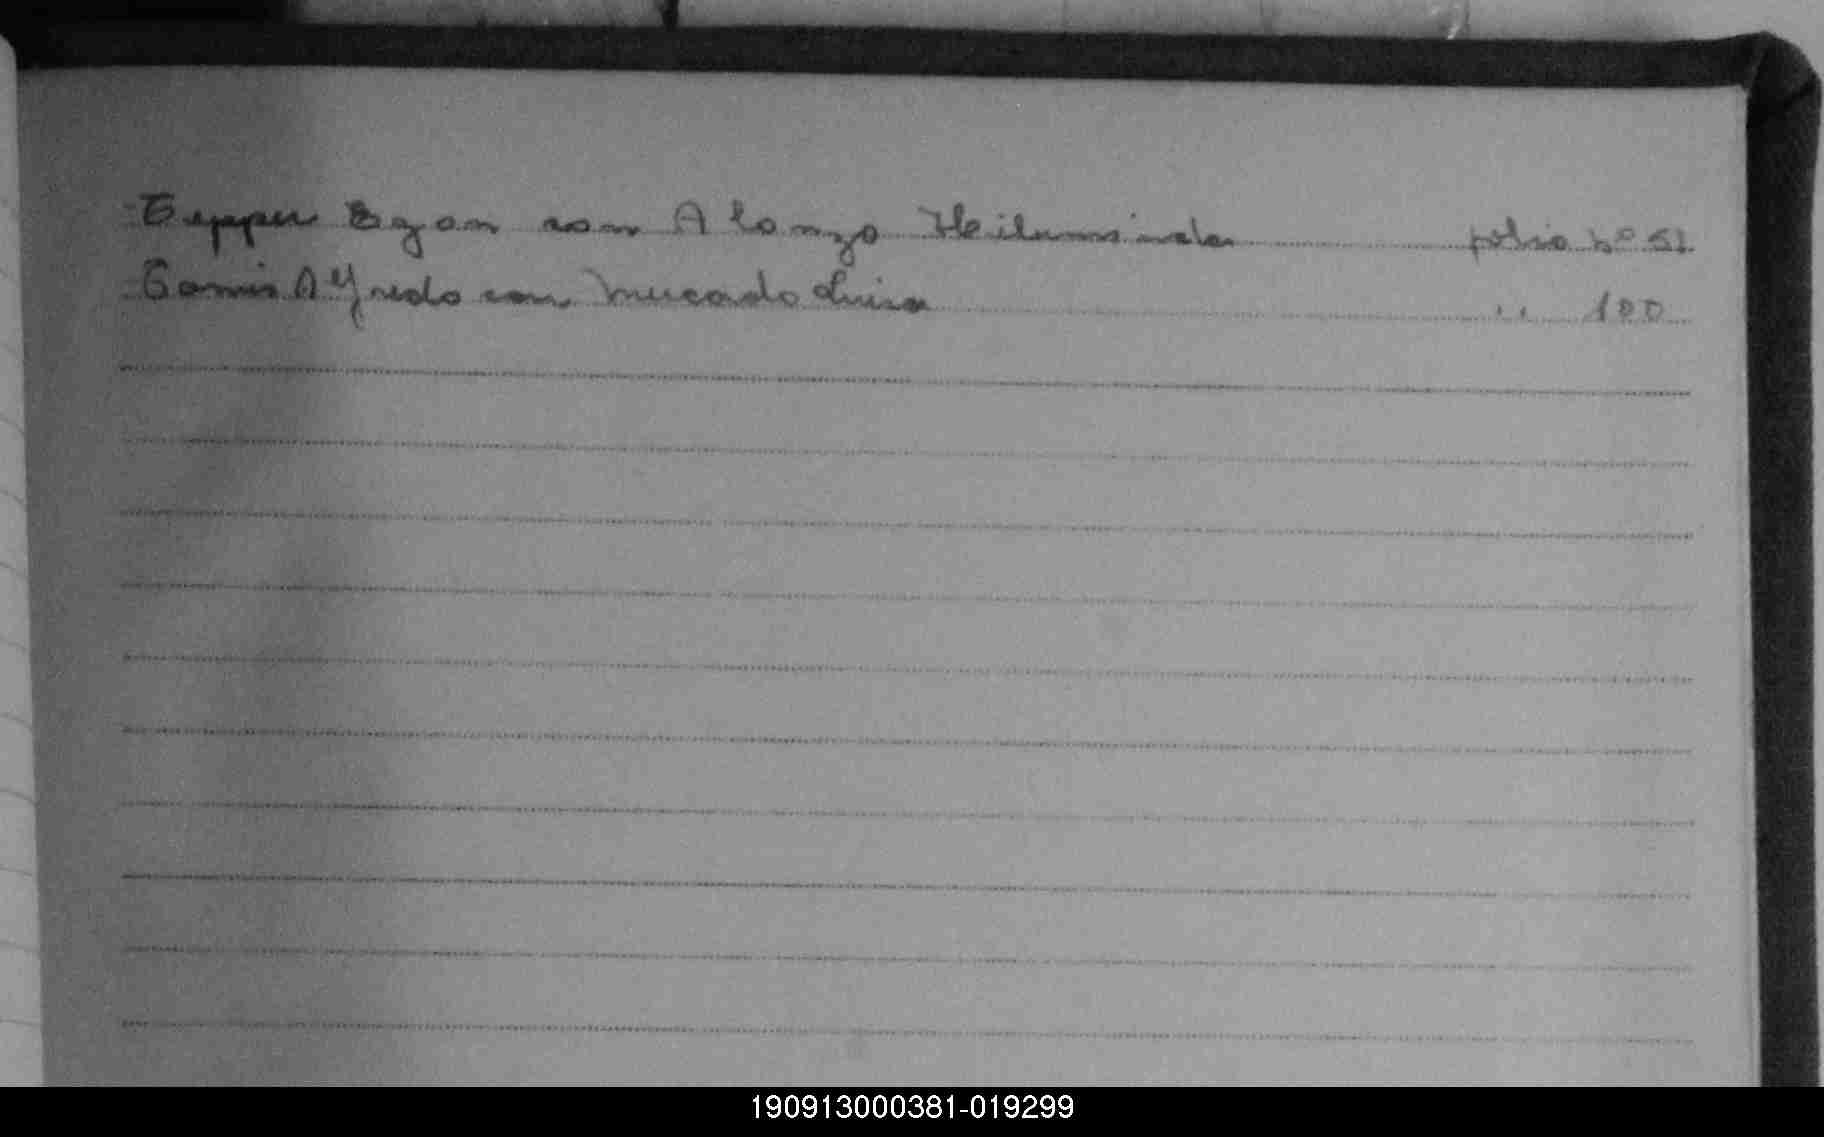 Tepper Egon con Alonzo Heilumsinda folio nº 51
Tamis Alfredo con Mercado Luisa " 100
190913000381-019299